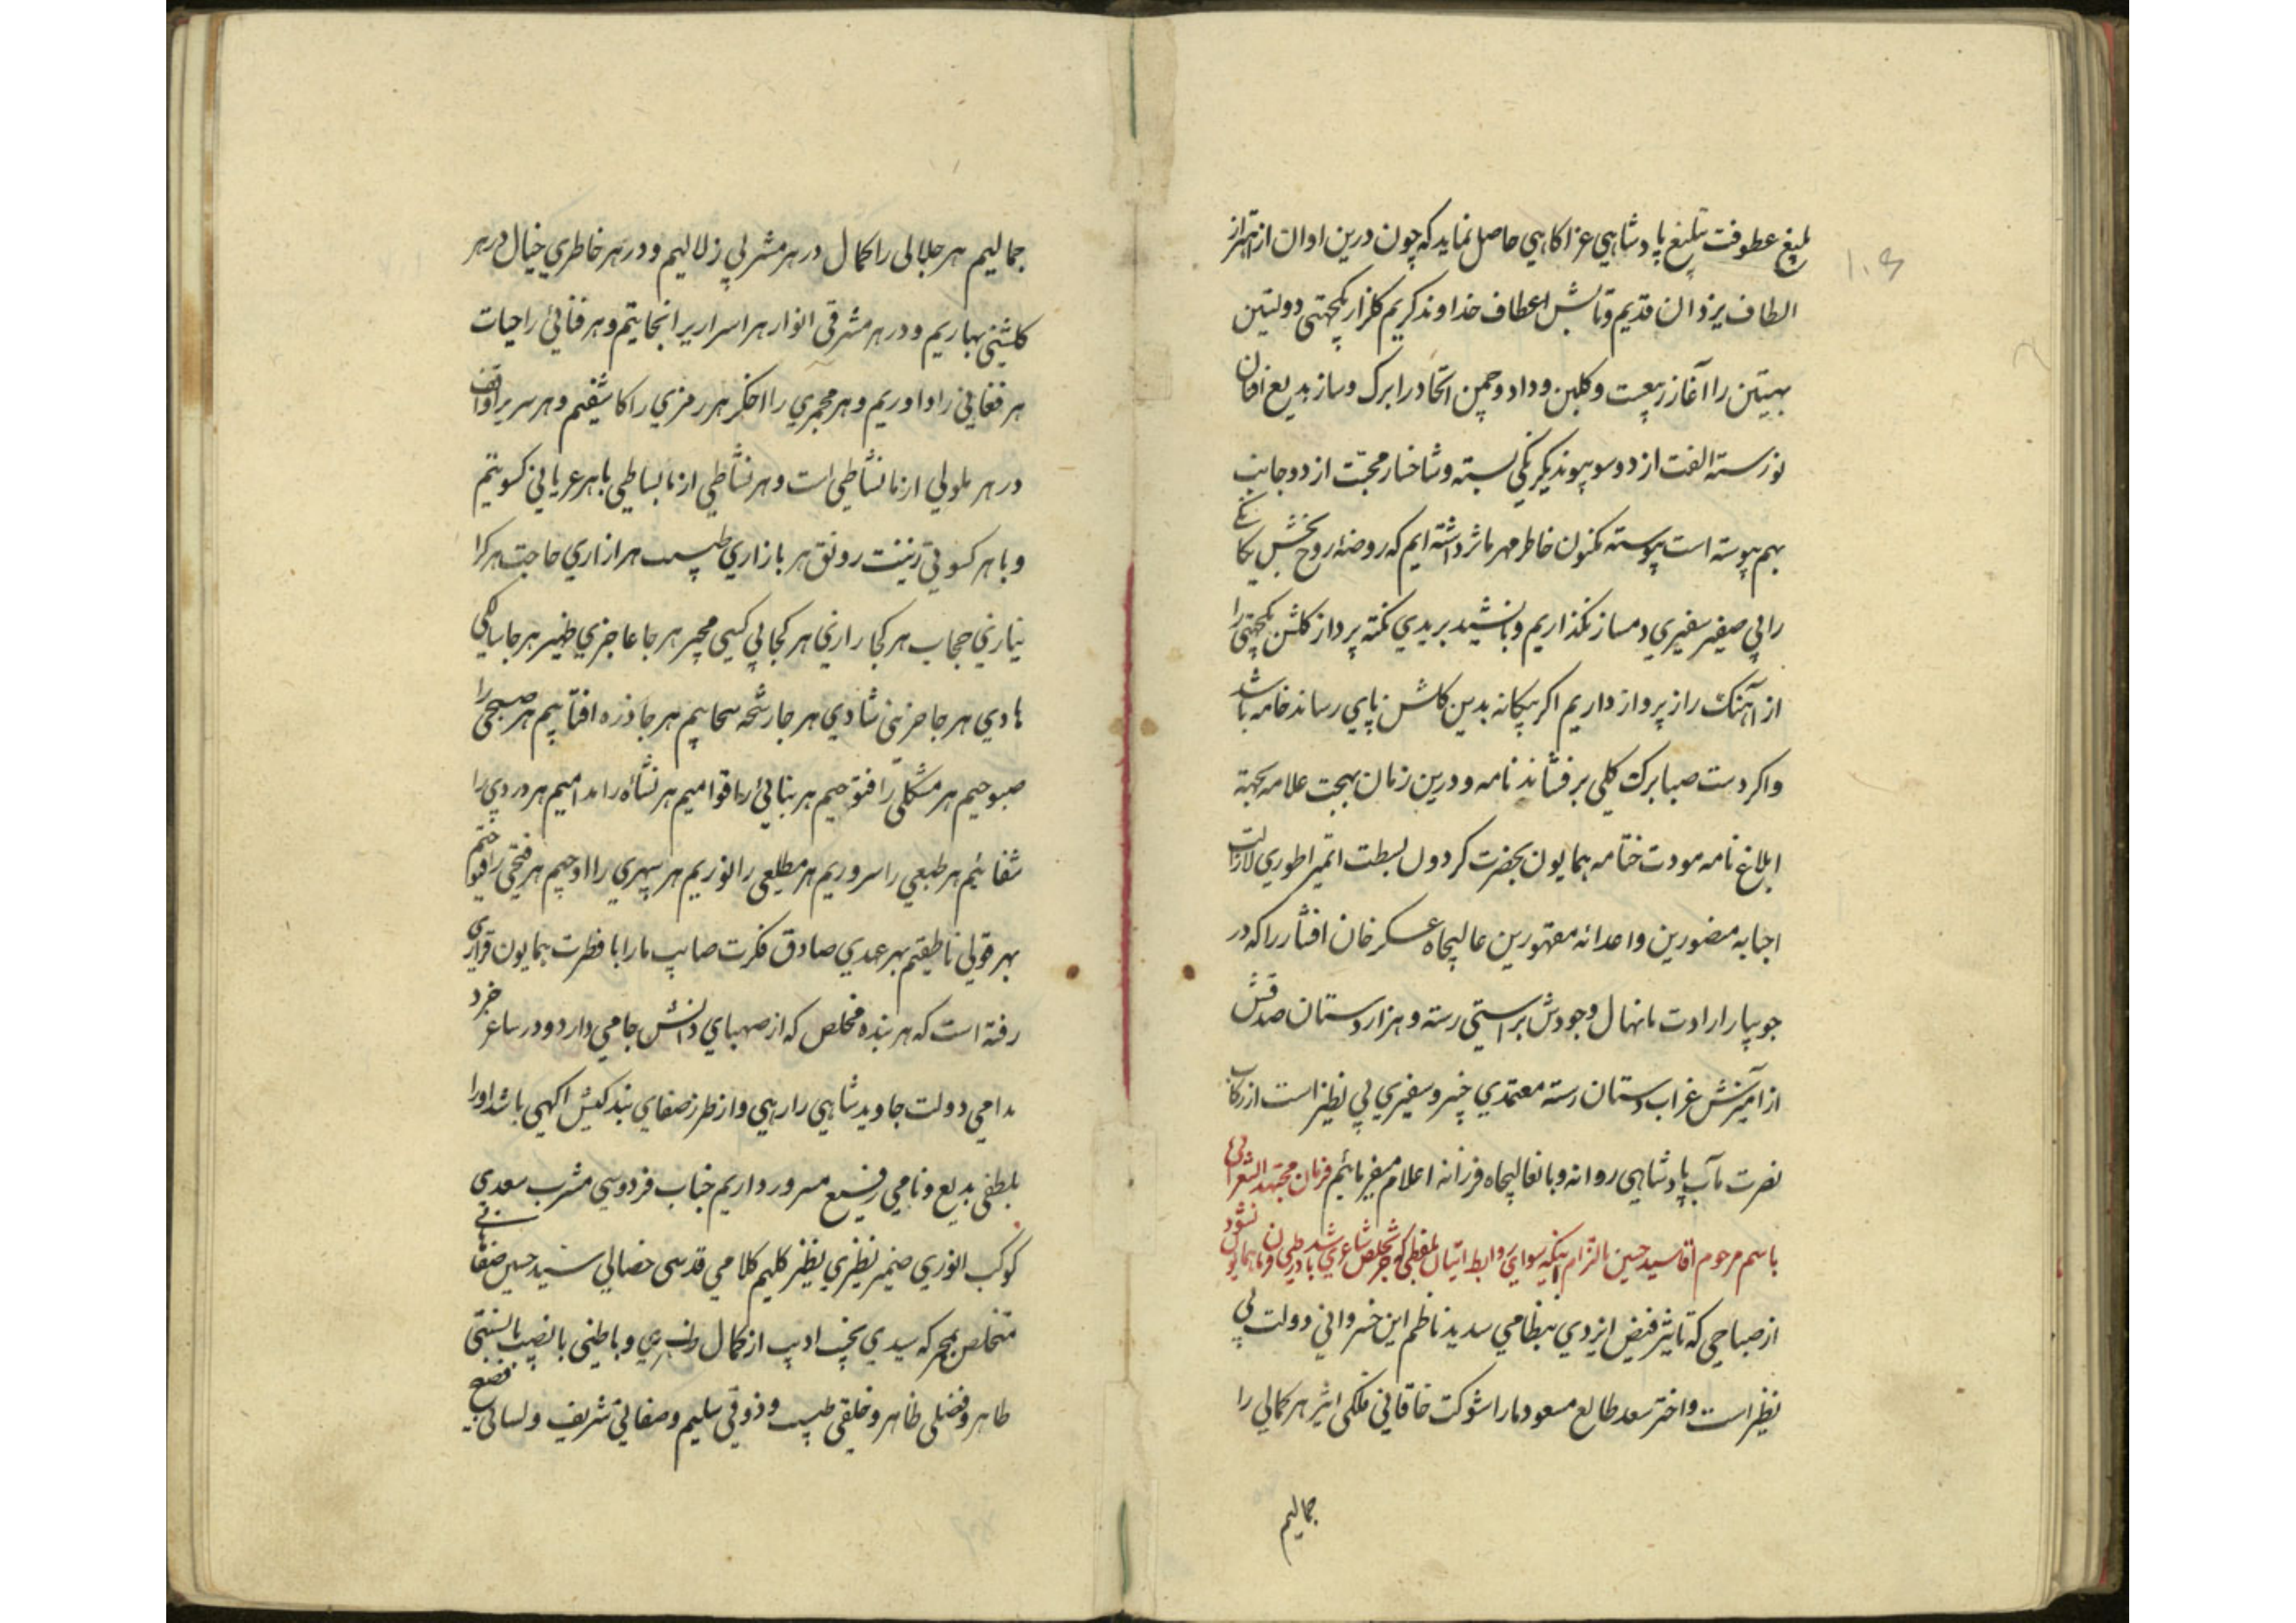 بلیغ عطوفت تبلیغ پادشاهی عز اکاهی حاصل نماید که چون درین اوان از اهتزاز
الطاف یزدان قدیم و تابش اعطاف خداوند کریم کلزار یکجهتی دولتین
بهیتین را آغاز ربیعست و کلبن وداد و چمن اتحاد را برک و ساز بدیع افنان
نورسته الفت از دو سو پیوند یکرنکی بسته و شاخسار محبت از دو جانب
بهم پیوسته است پیوسته مکنون خاطر مهر ماثر داشته ایم که روضه روح بخش یکانکی
را بی صفیر سفیری دمساز نکذاریم و با نشید بریدی نکته پرداز کلشن یکجهتی را
از آهنک راز پرواز داریم اکر پیکانه بدین کلشن پای رساند خامه باشد
و اکر دست صبا برک کلی بر فشاند نامه و درین زمان بهجت علامه بجهة
ابلاغ نامه مودت ختامه همایون بحضرت کردون بسطت امپراطوری لازالت
احبابه منصورین و اعدائه مقهورین عالیجاه عسکرخان افشار را که در
جویبار ارادت ما نهال وجودش براستی رسته و هزاردستان صدقش
از آمیزش غراب دستان رسته معتمدی خبیر و سفیری بی نظیر است از رکاب
نصرت مآب پادشاهی روانه و بانعالیجاه فرزانه اعلام میفرمائیم فرمان مجتهد الشعرائی
باسم مرحوم آقا سید حسین بالتزام اینکه سوای روابط اتیان بلفظی که جز تخلص شاعری باشد در طی آن نشود فرمان همایون
از صباحی که تاثیر فیض ایزدی بنظامی سدید ناظم این خسروانی دولت بی
نظیر است و اختر سعد طالع مسعود ما را شوکت خاقانی فلکی اثیر هر کمالی را
جمالیم
جمالیم هر جلالی را کمال در هر مشربی زلالیم و در هر خاطری خیال در هر
کلشنی بهاریم و در هر مشرقی انوار هر اسراریرا نجاتیم و هر فنائی را حیات
هر فغانی را داوریم و هر مجمری را اخکر هر رمزی را کاشفیم و هر سریرا واقف
در هر ملولی از ما نشاطی است و هر نشاطی از ما بساطی با هر عریانی کسوتیم
و با هر کسوتی زینت رونق هر بازاری طبیب هر ازاری حاجت هر کرا
نیازی حجاب هر کجا رازی هر کجا بی کسی مجیر هر جا عاجزی ظهیر هر جا سالکی
هادی هر جا حزنی شادی هر جا رشحه سحابیم هر جا ذره افتابیم هر صبحی را
صبوحیم هر مشکلی را فتوحیم هر بنائی را قوامیم هر نشأه را مدامیم هر دردی را
شفائیم هر طبعی را سروریم هر مطلعی را انوریم هر سپهری را اوجیم هر فتحی را فوجیم
بهر قولی ناطیقیم بهر عهدی صادق فکرت صایب ما را با فطرت همایون قراری
رفته است که هر بنده مخلص که از صهبای دانش جامی دارد و در ساغر خرد
مدامی دولت جاوید شاهی را رهی و از طرز صفای بندکیش اکهی باشد او را
بلطفی بدیع و نامی رفیع مسرور داریم جناب فردوسی مشرب سعدی
کوکب انوری ضمیر نظیری نظیر کلیم کلامی قدسی خصالی سید حسین صفاهانی
متخلص بمجمر که سیدی نجیب ادیب از کمال ظاهری و باطنی با نصیب با نسبتی
طاهر و فضلی ظاهر و خلقی طیب و ذوقی سلیم و صفاتی شریف و لسانی فصیح